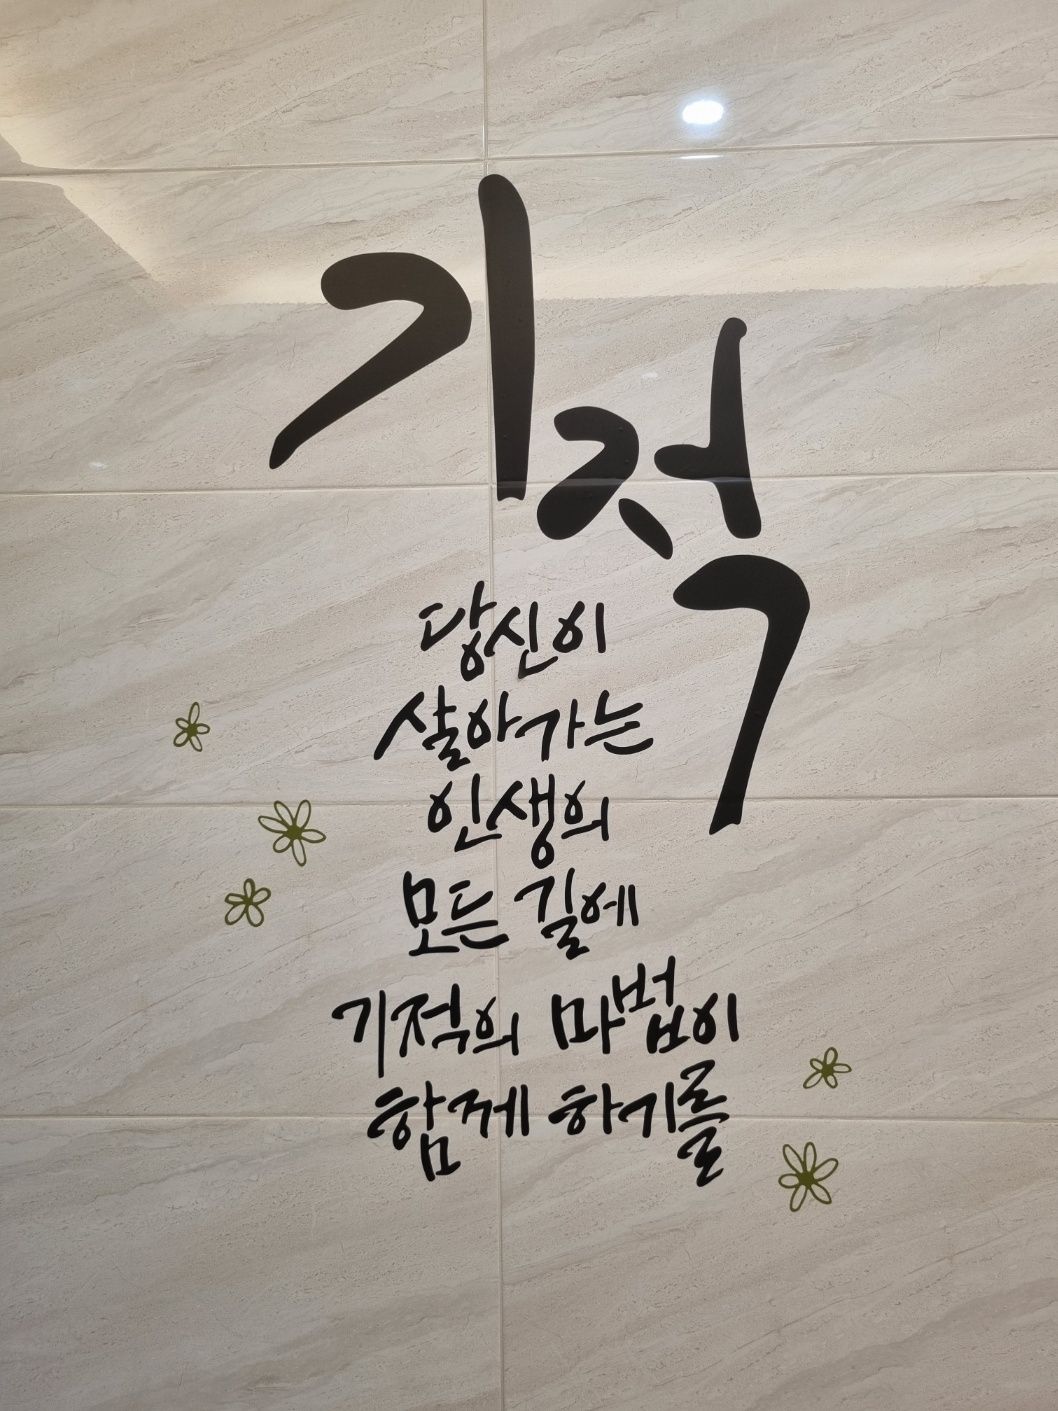 기적
당신이
살아가는
인생의
모든 길에
기적의 마법이
함께 하기를